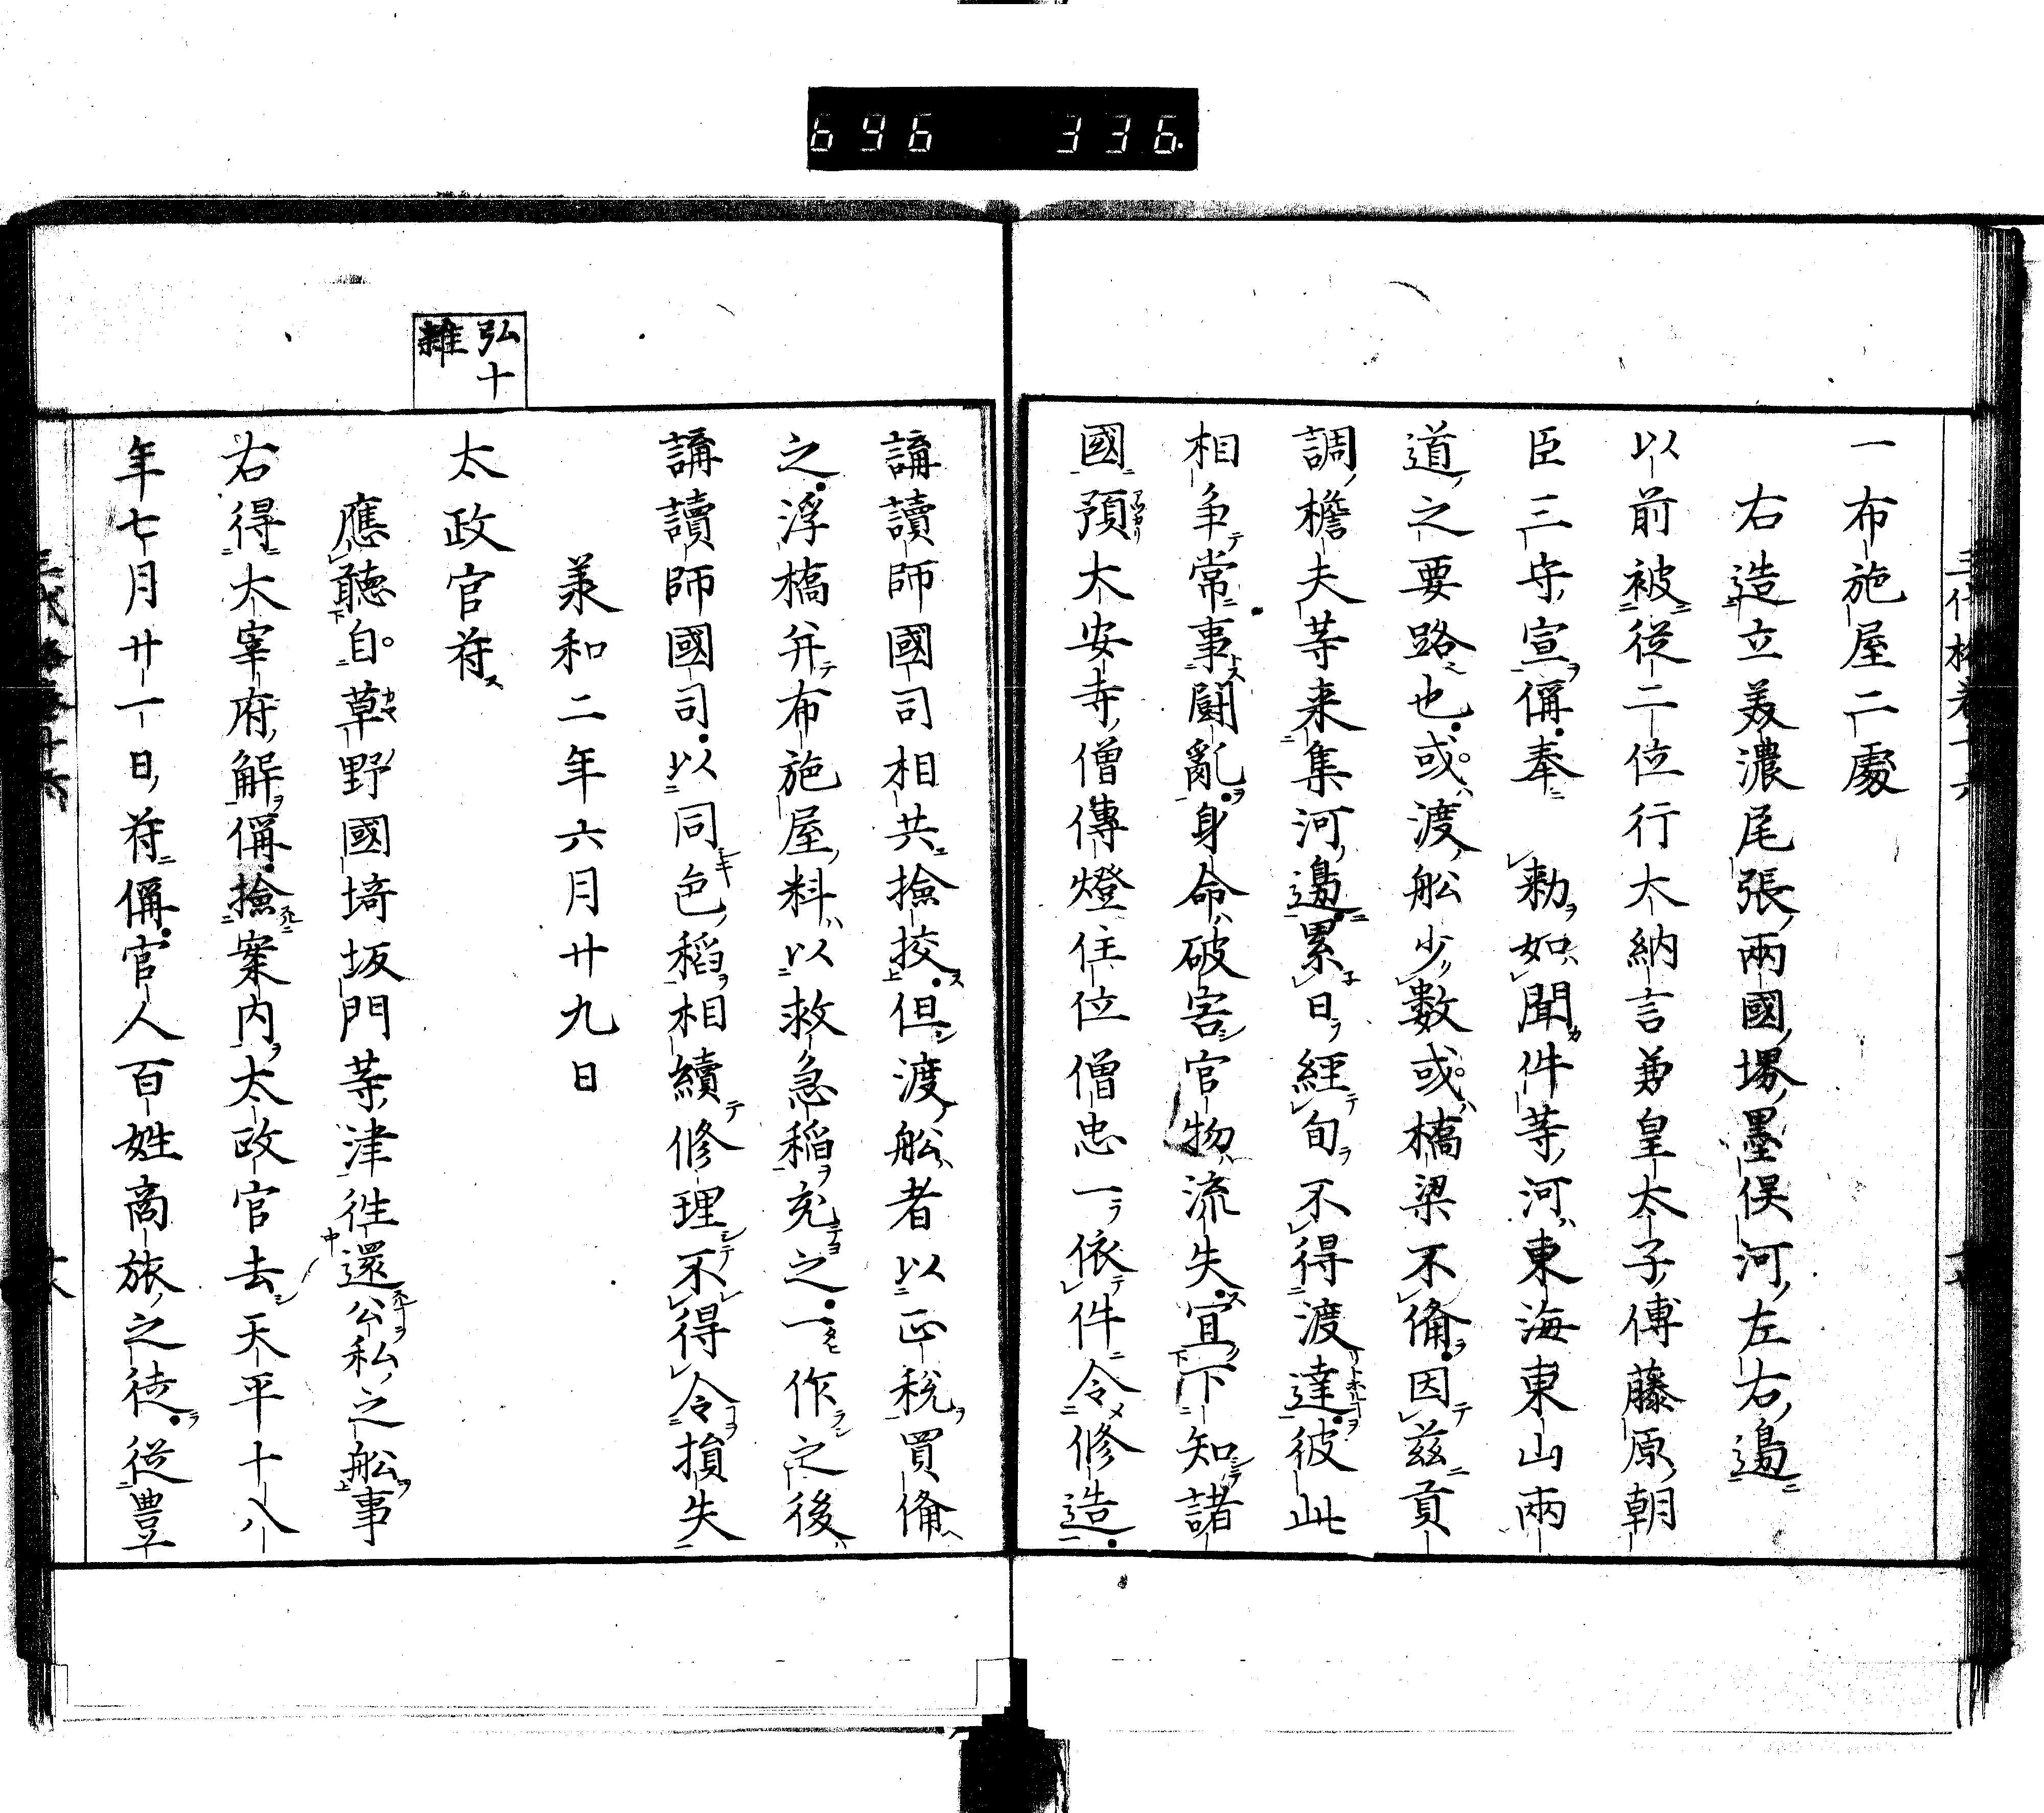 696 336.
三代格卷十六
一布施屋二處
右造立美濃尾張兩國堺墨俣河左右邊
以前被從二位行大納言兼皇太子傅藤原朝
臣三守宣偁奉 勅如聞件等河東海東山兩
道之要路也或渡舩少數或橋梁不備因玆貢
調擔夫等来集河邊累日經旬不得渡達彼此
相争常事鬪亂身命破害官物流失宜下知諸
國預大安寺僧傳燈住位僧忠一依件令修造
講讀師國司相共撿挍但渡舩者以正税買備
之浮橋并布施屋料以救急稲充之一作之後
講讀師國司以同色稻相續修理不得令損失
羕和二年六月廿九日
弘十
雜
太政官符
應聽自草野國埼坂門等津徃還公私之舩事
右得大宰府解偁撿案内太政官去天平十八
年七月廿一日符偁官人百姓商旅之徒從豊